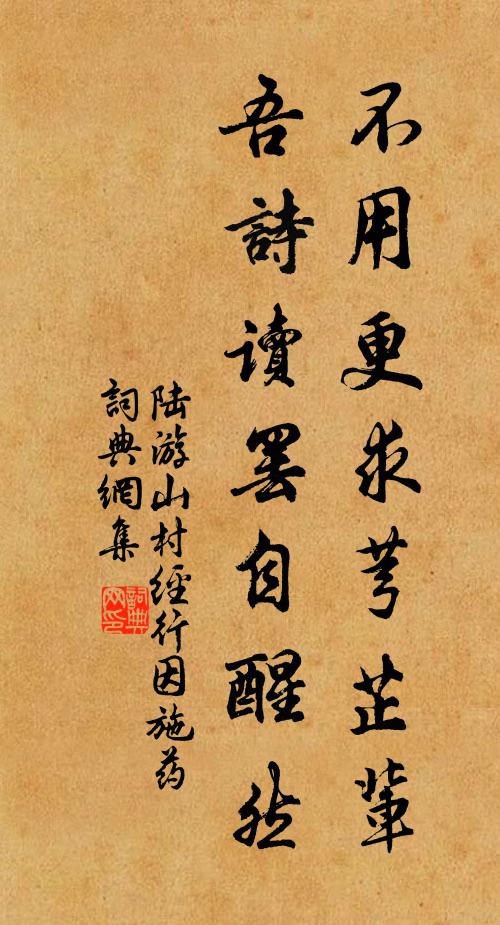 不用更求芎芷輩
吾詩读罢自醒然
陆游山村經行因施药
詞典網集
詞典网印